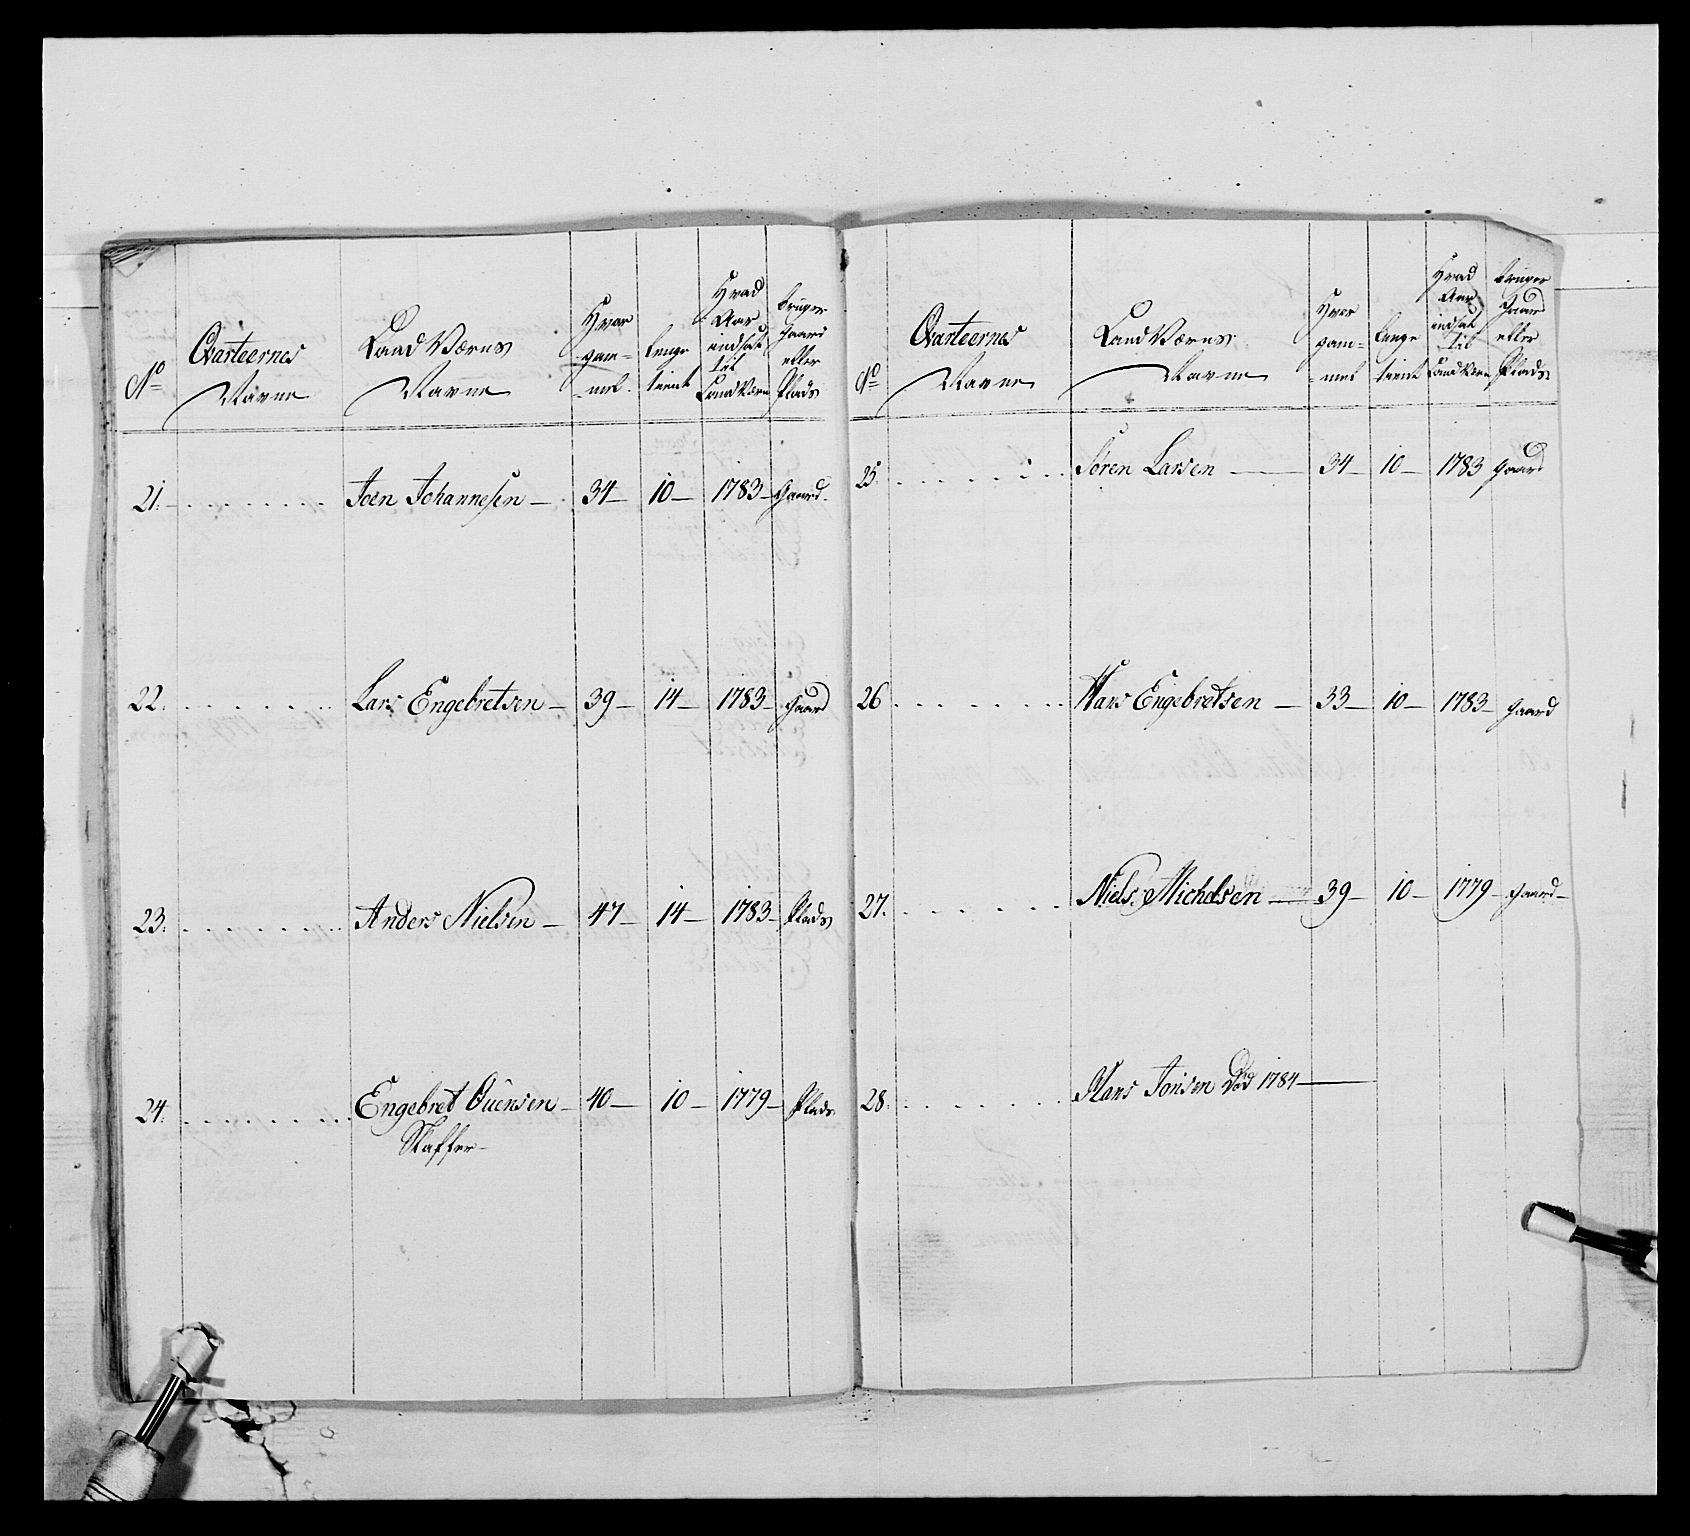 No
Qvarteernes
Navne
Land Værns
Navne
Hvor
gam-
mel
lenge
tient
Hvad
Aar
indsat
til
Land Værn
bruger
gaard
eller
Plads
21. Joen Johannesen 34 10 1783 gaard
22. Lars Engebretsen 39 14 1783 gaard
23. Anders Nielsen 47 14 1783 Plads
24. Engebret Guensen 40 10 1779 Plads
No
Qvarteernes
Navne
Land Værns
Navne
Hvor
gam-
mel
lenge
tient
Hvad
Aar
indsat
til
Land Værn
bruger
Gaard
eller
Plads
25. Søren Larsen 34 10 1783 gaard
26 Hans Engebretsen 33 10 1783 gaard
27. Niels Michelsen 39 10 1779 gaard
28. Hans Jonsen Død 1784